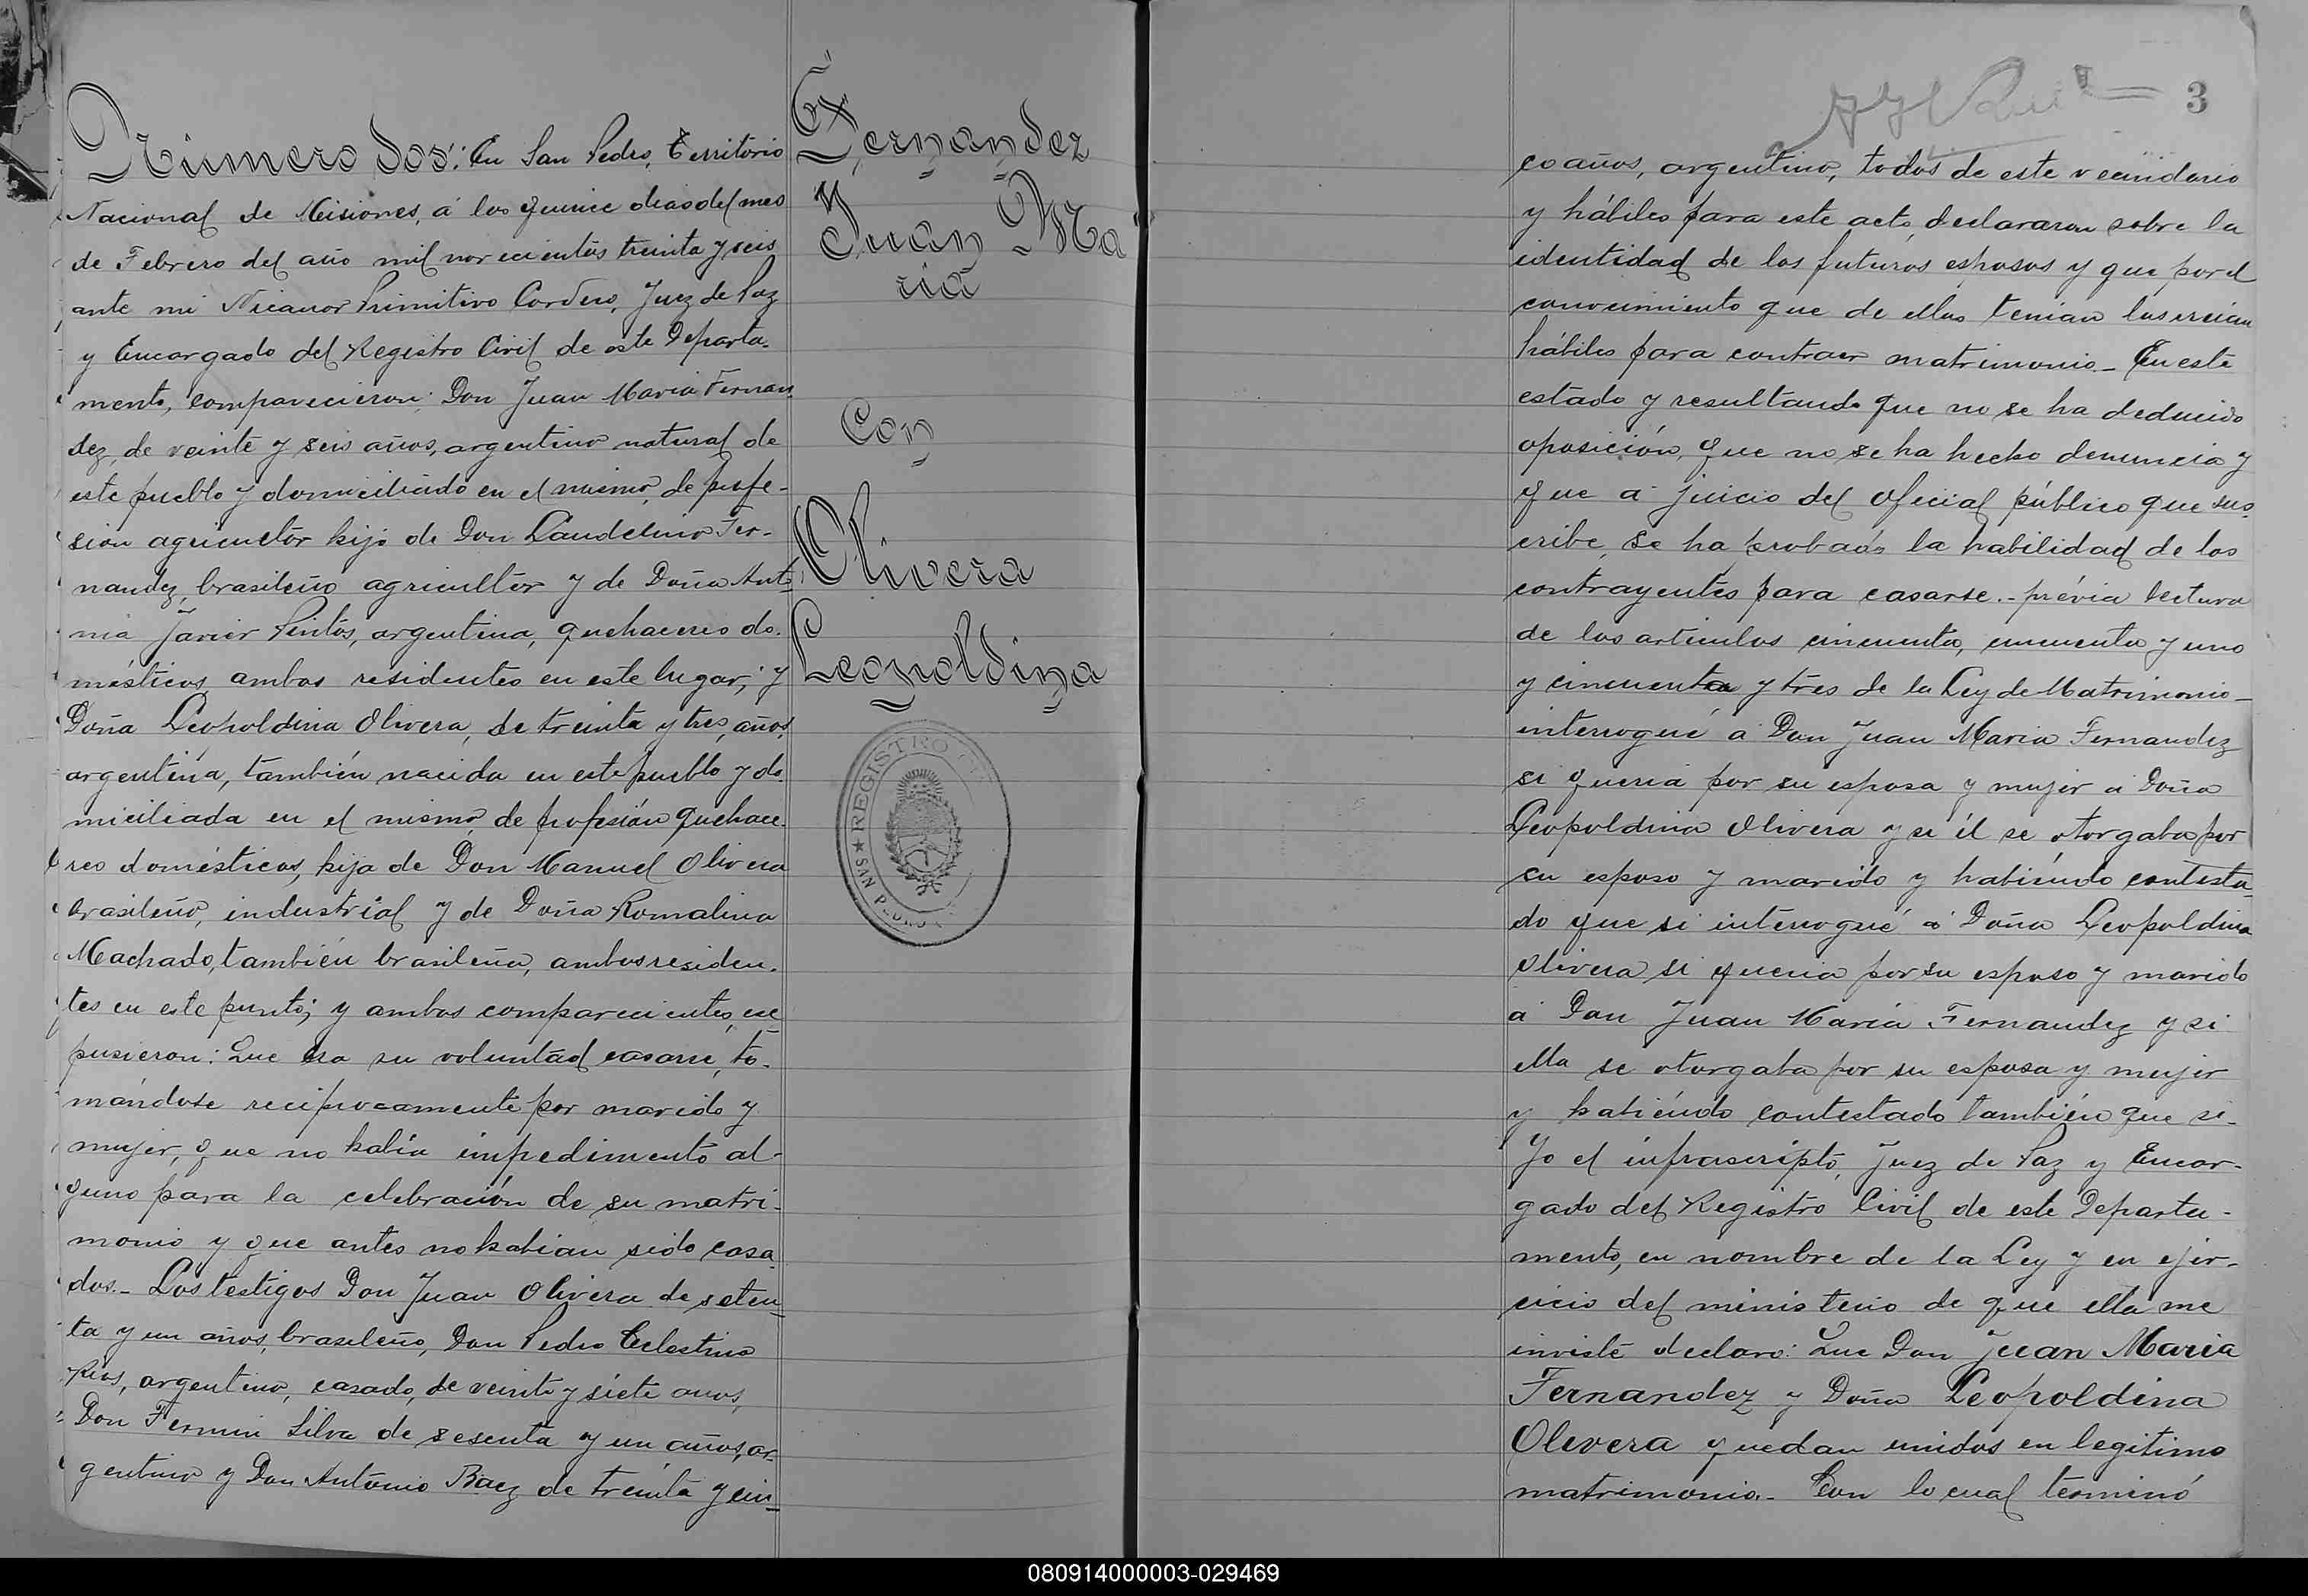 Número dos: En San Pedro, Territorio
Nacional de Misiones, á los quince dias del mes
de Febrero del año mil novecientos treinta y seis
ante mi Nicanor Primitivo Cordero, Juez de Paz
y Encargado del Registro Civil de este Departa-
mento, comparecieron: Don Juan Maria Fernan
dez, de veinte y seis años, argentino natural de
este pueblo y domiciliado en el mismo, de profe-
sión agricultor hijo de Don Laudelino Fer-
nandez, brasileño agricultor y de Doña Anto
nia Javier Pintos, argentina, quehaceres do-
mésticos, ambos residentes en este lugar; y
Doña Leopoldina Olivera, de treinta y tres, años,
argentina, también nacida en este pueblo y do
miciliada en el mismo, de profesión quehace-
res domésticos, hija de Don Manuel Olivera
brasileño, industrial y de Doña Romalina
Machado, también brasileña, ambos residen-
tes en este punto; y ambos comparecientes, ex
pusieron: Que era su voluntad casarse, to-
mándose reciprocamente por marido y
mujer, que no había impedimento al-
guno para la celebración de su matri-
monio y que antes no habian sido casa
dos.- Los testigos Don Juan Olivera de seten-
ta y un años, brasileño, Don Pedro Celestino
Rios, argentino, casado, de veinte y siete anos,
Don Fermin Silva de sesenta y un años, ar-
gentino y Don Antonio Baez de treinta y cin-
Fernandez
Juan Ma
ria
Con
Olivera
Leopoldina
REGISTRO CI
SAN PEDRO
3
co años, argentino, todos de este vecindario
y hábiles para este acto, declararon sobre la
identidad de los futuros esposos y que por el
conocimiento que de ellos tenian los creian
hábiles para contraer matrimonio.- En este
estado y resultando que no se ha deducido
oposición, que no se ha hecho denuncia y
que a juicio del oficial público que sus
cribe, se ha probado la habilidad de los
contrayentes para casarse.- prévia lectura
de los articulos cincuenta, cincuenta y uno
y cincuenta y tres de la Ley de Matrimonio-
interrogué á Don Juan Maria Fernandez
si queria por su esposa y mujer á Doña
Leopoldina Olivera y si él se otorgaba por
su esposo y marido y habiéndo contesta-
do que si interrogué á Doña Leopoldina
Olivera si queria por su esposo y marido
á Don Juan Maria Fernandez y si
ella se otorgaba por su esposa y mujer
y habiéndo contestado también que si-
Yo el infrascripto, Juez de Paz y Encar-
gado del Registro Civil de este Departa-
mento, en nombre de la Ley y en ejer-
cicio del ministerio de que ella me
inviste declaro: Que Don Juan Maria
Fernandez y Doña Leopoldina
Olivera quedan unidos en legitimo
matrimonio.- Con lo cual terminó
080914000003-029469